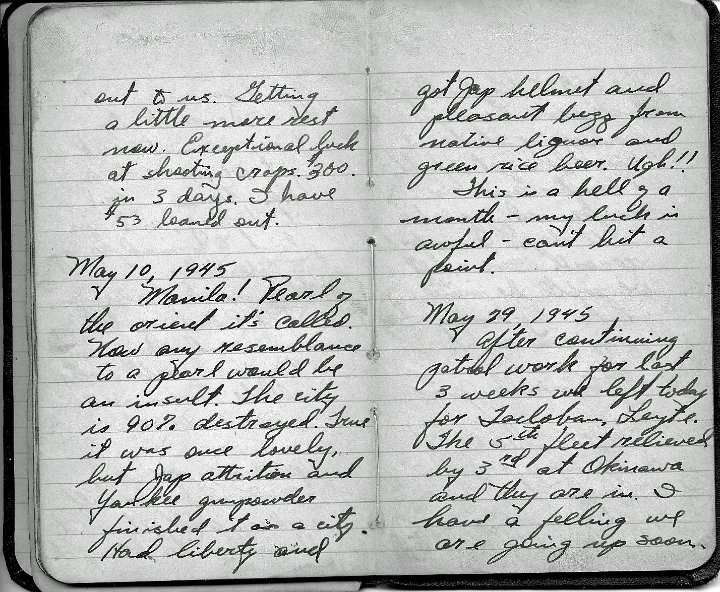 out to us. Getting
a little more rest
now. Exceptional luck
at shooting craps. $300.
in 3 days. I have
$53 loaned out.
May 10, 1945
Manila! Pearl of
the orient it's called.
Now any resemblance
to a pearl would be
an insult. The city
is 90% destroyed. True
it was once lovely,
but Jap attrition and
Yankee gunpowder
finished it as a city.
Had liberty and
got Jap helmet and
pleasant buzz from
native liquor and
green rice beer. Ugh!!
This is a hell of a
month - my luck is
awful - can't hit a
point.
May 29, 1945
After continuing
patrol work for last
3 weeks we left today
for Tacloban, Leyte.
The 5th fleet relieved
by 3rd at Okinawa
and they are in. I
have a feeling we
are going up soon.